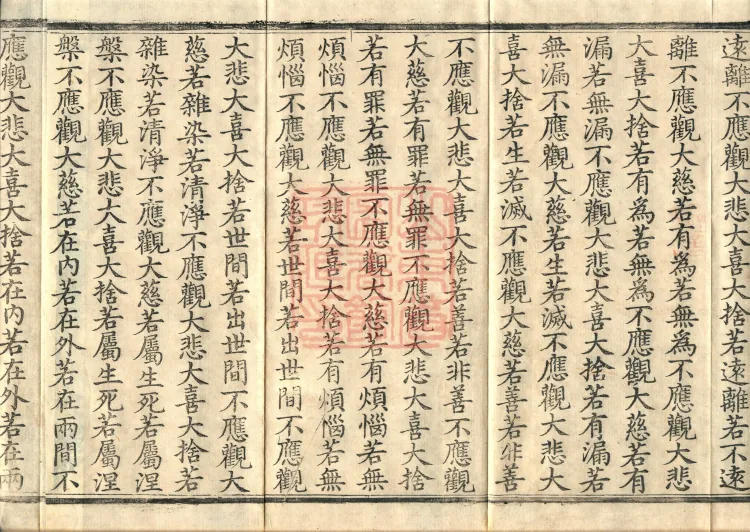 遠離不應觀大悲大喜大捨若遠離若不遠
離不應觀大慈若有爲若無爲不應觀大悲
大喜大捨若有爲若無爲不應觀大慈若有
漏若無漏不應觀大悲大喜大捨若有漏若
無漏不應觀大慈若生若滅不應觀大悲大
喜大捨若生若滅不應觀大慈若善若非善
不應觀大悲大喜大捨若善若非善不應觀
大慈若有罪若無罪不應觀大悲大喜大捨
若有罪若無罪不應觀大慈若有煩惱若無
煩惱不應觀大悲大喜大捨若有煩惱若無
煩惱不應觀大慈若世間若出世間不應觀
大悲大喜大捨若世間若出世間不應觀大
慈若雜染若清淨不應觀大悲大喜大捨若
雜染若清淨不應觀大慈若屬生死若屬涅
槃不應觀大悲大喜大捨若屬生死若屬涅
槃不應觀大慈若在內若在外若在兩間不
應觀大悲大喜大捨若在內若在外若在兩